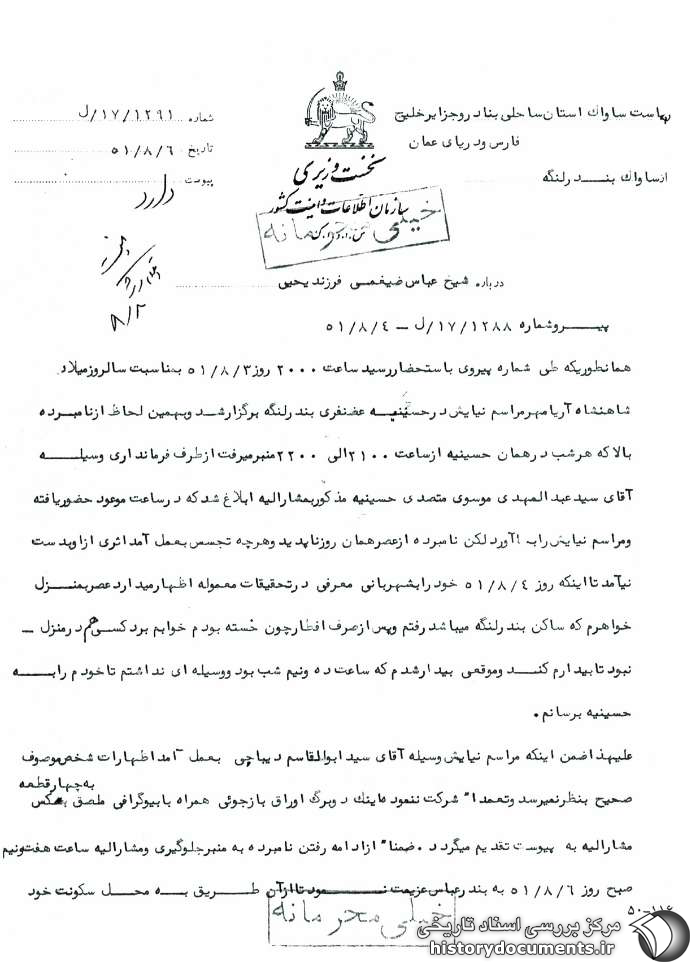 ریاست ساواك استان ساحلی بنادر و جزایر خلیج
فارس و دریای عمان
از ساواك بندرلنگه
نخست وزیری
سازمان اطلاعات و امنیت کشور
س.ا.و.ا.ک
شماره ۱۷/۱۲۹۱/ل
تاریخ ۵۱/۸/۶
پیوست دارد
خیلی محرمانه
۸/۲
درباره شیخ عباس ضیغمی فرزند یحیی
پیرو شماره ۱۷/۱۲۸۸/ل – ۵۱/۸/۴
همانطوریکه طی شماره پیروی باستحضار رسید ساعت ۲۰۰۰ روز ۵۱/۸/۳ بمناسبت سالروز میلاد
شاهنشاه آریامهر مراسم نیایش در حسینیه غضنفری بندرلنگه برگزار شد و بهمین لحاظ از نامبرده
بالا که هر شب در همان حسینیه از ساعت ۲۱۰۰ الی ۲۲۰۰ منبر میرفت از طرف فرمانداری وسیله
آقای سید عبدالمهدی موسوی متصدی حسینیه مذکور بمشارالیه ابلاغ شد که در ساعت موعود حضور یافته
و مراسم نیایش را بجا آورد لکن نامبرده از عصر همان روز ناپدید و هرچه تجسس بعمل آمد اثری از او بدست
نیامد تا اینکه روز ۵۱/۸/۴ خود را بشهربانی معرفی در تحقیقات معموله اظهار میدارد عصر بمنزل
خواهرم که ساکن بندرلنگه میباشد رفتم و پس از صرف افطار چون خسته بودم خوابم برد کسی هم در منزل –
نبود تا بیدارم کند و موقعی بیدار شدم که ساعت ده ونیم شب بود و وسیله ای نداشتم تا خودم را به
حسینیه برسانم .
علیهذا ضمن اینکه مراسم نیایش وسیله آقای سید ابوالقاسم دیباچی بعمل آمد اظهارات شخص موصوف
به چهار قطعه
صحیح بنظر نمیرسد و تعمدا" شرکت ننموده اینك دو برگ اوراق بازجوئی همراه با بیوگرافی ملصق بعکس
مشارالیه به پیوست تقدیم میگردد . ضمنا" از ادامه رفتن نامبرده به منبر جلوگیری و مشارالیه ساعت هفت ونیم
صبح روز ۵۱/۸/۶ به بندرعباس عزیمت نمود تا از آن طریق به محل سکونت خود
خیلی محرمانه
۵۰-۱۱۶
مرکز بررسی اسناد تاریخی
historydocuments.ir